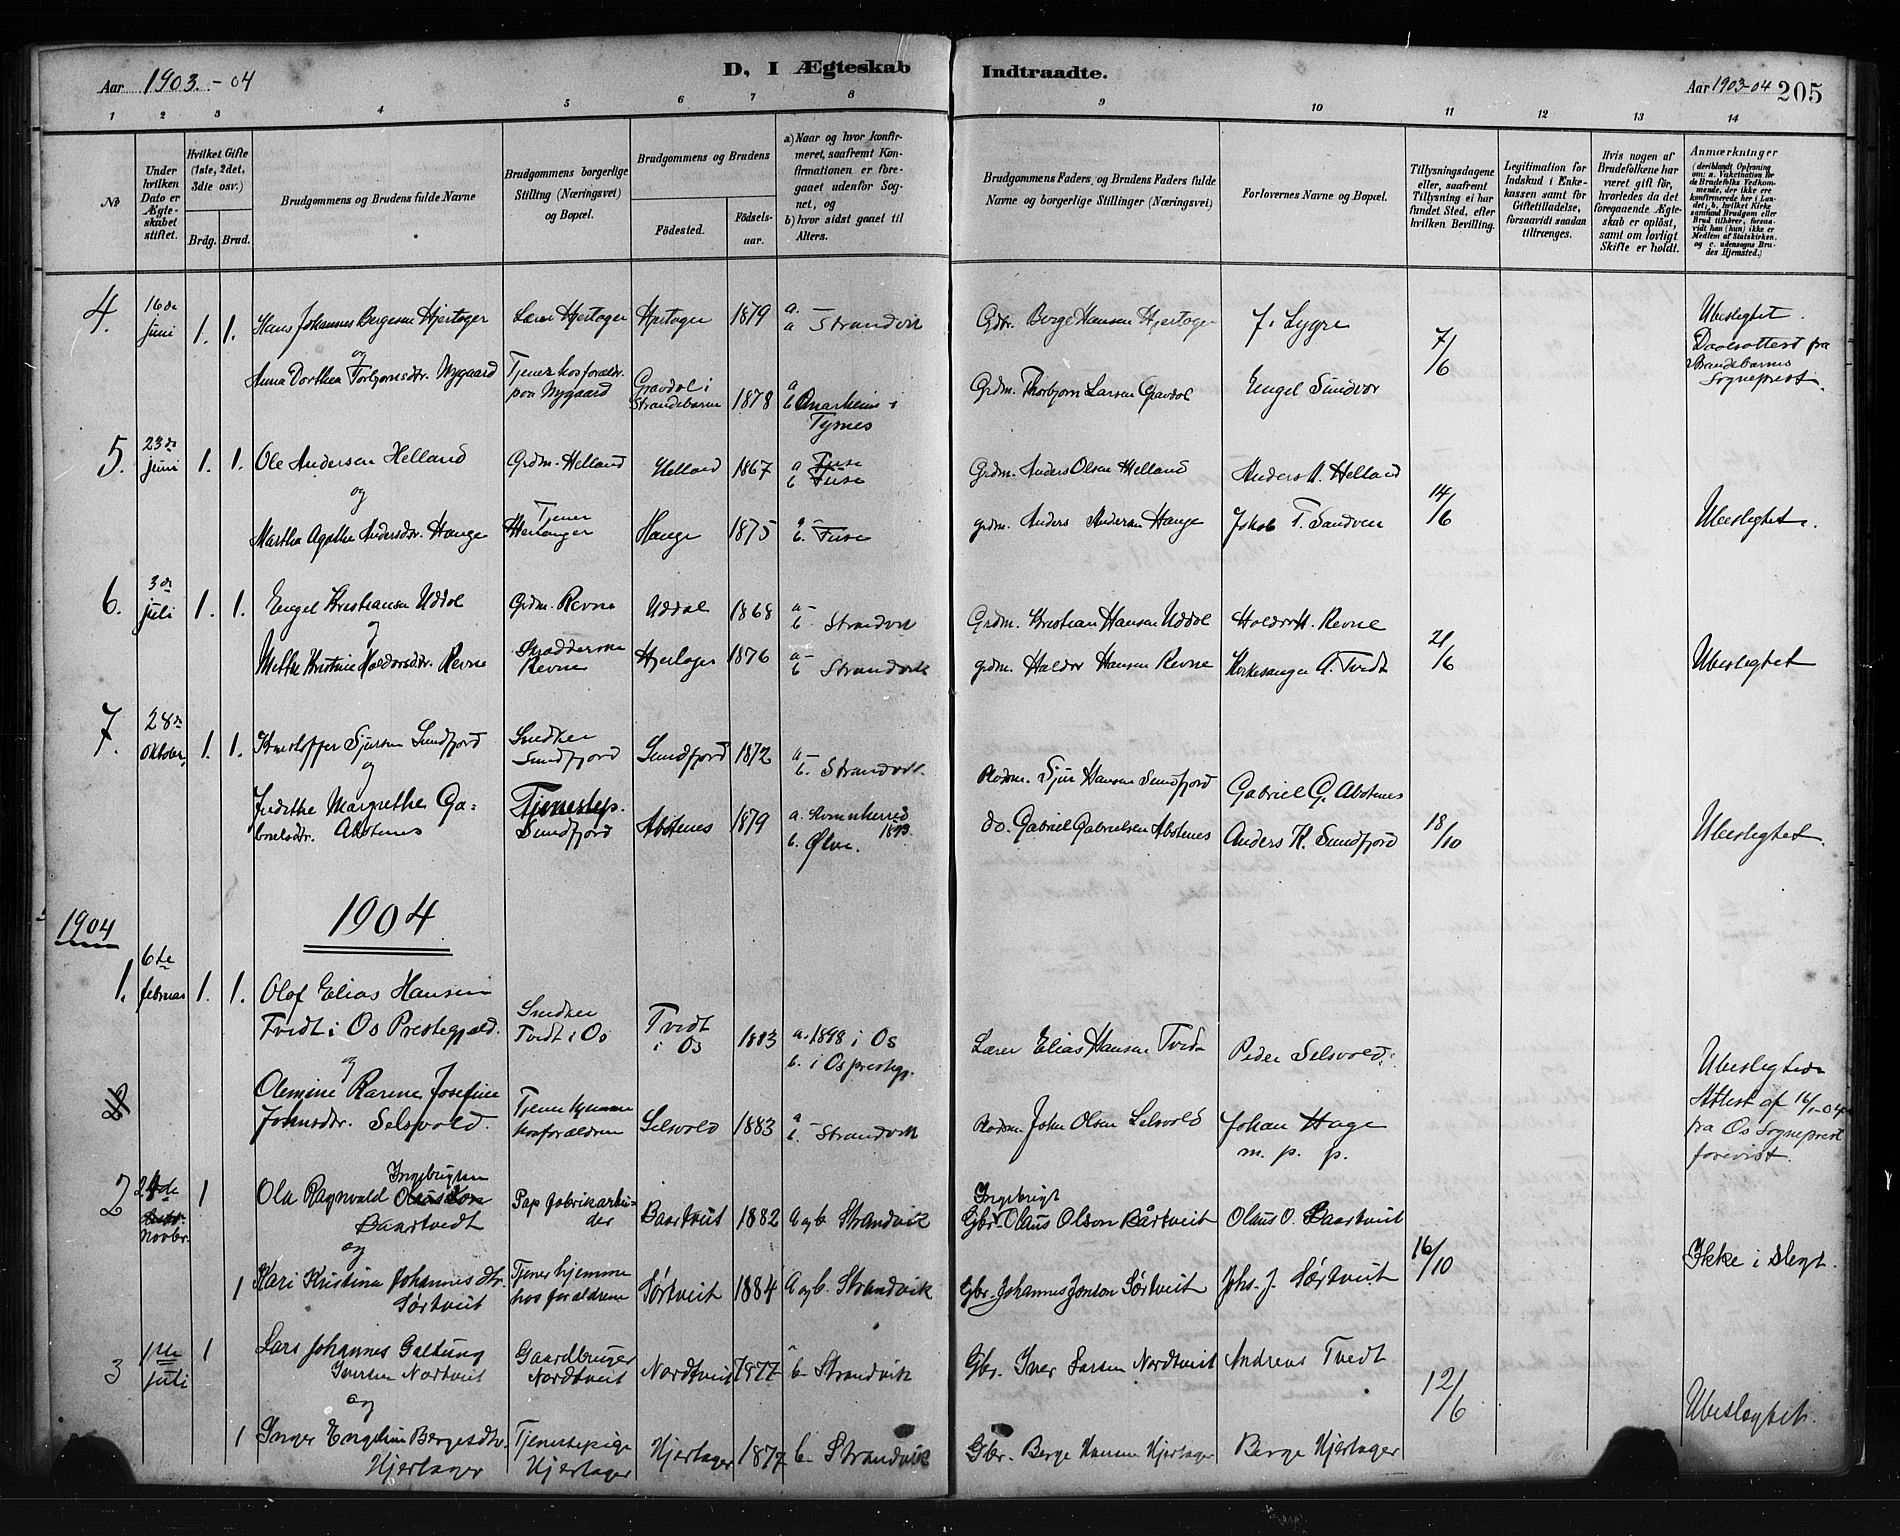 Aar 1903.-04
D, I Ægteskab
Indtraadte.
Aar 1903-04
205
1 2 3 4 5 6 7 8 9 10 11 12 13 14
No
Under hvilken Dato er Ægte-skabet stiftet.
Hvilket Gifte (1ste, 2det, 3die osv.)
Brdg. Brud.
Brudgommens og Brudens fulde Navne
Brudgommens borgerlige Stilling (Næringsvei) og Bopæl.
Brudgommens og Brudens
Fødested.
Fødsels-aar.
a) Naar og hvor konfir-meret, saafremt Kon-firmationen er fore-gaaet udenfor Sog-net, og
b) hvor sidst gaaet til Alters.
Brudgommens Faders og Brudens Faders fulde Navne og borgerlige Stillinger (Næringsvei)
Forlovernes Navne og Bopæl.
Tillysningsdagene eller, saafremt Tillysning ei har fundet Sted, efter hvilken Bevilling.
Legitimation for Indskud i Enke-kassen samt for Giftetilladelse, forsaavidt saadan tiltrænges.
Hvis nogen af Brudefolkene har været gift før, hvorledes da det foregaaende Ægte-skab er opløst, samt om lovligt Skifte er holdt.
Anmærkninger
(deriblandt Oplysning om: a. Vaccination for de Brudefolks Vedkom-mende, der ikke ere konfirmerede her i Lan-det, b. hvilket Kirke-samfund Brudgom eller Brud tilhører, forsaa-vidt han (hun) ikke er Medlem af Statskirken, og c. udensogns Bru-des Hjemsted.)
4. 16de juni 1. 1. Hans Johannes Bergesen Hjertager Lærer Hjertager Hjertager 1879 a. a Strandvik Grdbr. Berge Hansen Hjertager J. Lygre 7/6 Ubeslegtet.
og
Anna Dorthea Torbjørnsdtr. Nygaard Tjener hos foræld. paa Nygaard Gravdal i Strandebarm 1878 a b Onarheim i Tysnes Grdm. Thorbjørn Larsen Gravdal Engel Sundvor Daabsattest fra Strandebarms Sogneprest.
5. 23de juni 1. 1. Ole Andersen Helland Grdm. Helland Helland 1867 a b Fuse Grdm. Anders Olsen Helland Anders A. Helland 14/6
og
Martha Agathe Andersdtr. Hauge Tjener Hauge 1875 a b. Fuse grdm. Anders Andersen Hauge Jakob T. Sandven Ubeslegtet.
6. 3de juli 1. 1. Engel Kristiansen Uddal Grdm. Revne Uddal 1868 a b. Strandvik Grdm. Kristian Hansen Uddal Haldor H. Revne 21/6
og
Mette Kristine Haldorsdtr. Revne Revne Hjertager 1876 a b Strandvik grdm. Haldor Hansen Revne Kirkesanger A. Tvedt Ubeslegtet
7. 28de Oktober, 1. 1. Kristoffer Sjursen Sundfjord Snedker Sundfjord Sundfjord 1872 a b. Strandvik. Sjur Hansen Sundfjord Gabriel G. Abotenes 18/10
og
Margrethe Ga=brielsdtr. Abotenes Tjenestep. Sundfjord Abotenes 1879 a. Kvinnherred 1893. b. Ølve. do. Gabriel Gabrielsen Abotenes Anders K. Sundfjord Ubeslegtet.
1904
1904
1. 6te februar 1. 1. Olaf Elias Hansen Tvedt i Os Prestegjæld. Snedker Tvedt i Os Tvedt i Os 1883 a. 1898 i Os b. i Os prestegj. Lærer Elias Hansen Tvedt Peder Selsvold
og
Olemine Karene Josefine Johnsdtr. Selsvold. Tjener hjemme hos forældrene Selsvold 1883 a b. Strandvik John Olsen Selsvold Johan Hage m. p. p. Ubeslegtede Attest af 16/1-04 fra Os Sogneprest forevist.
2 24de Novbr. 1 Ola Ragnvald Ingebrigtsen Baartvedt Papfabrikarbeider Baartveit 1882 a og b Strandvik Ingebrigt Gbr. Olaus Olson Bårtveit Olaus O. Baartveit
og
1 Kari Kristina Johannesdtr. Sørtveit Tjener hjemme hos forældrene Sørtveit 1884 a og b. Strandvik Gbr. Johannes Jonson Sørtveit Johs. J. Sørtveit 16/10 Ikke i slegt.
3 1ste juli 1 Lars Johannes Galtung Iversen Nordtveit Gaardbruger Nordtveit Nordtveit 1877 b Strandvik Gbr. Iver Larsen Nordtveit Andreas Tvedt 12/6
og
1 Inger Engeline Bergesdtr. Hjertager Tjenestepige Hjertager Hjertager 1877 b Strandvik Gbr. Berge Hansen Hjertager Berge Hjertager Ubeslegtet.